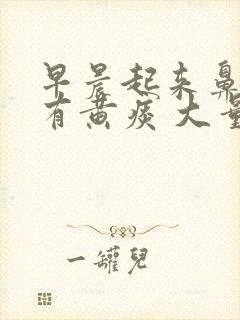 早晨起来鼻
有黄痰大量
一罐儿